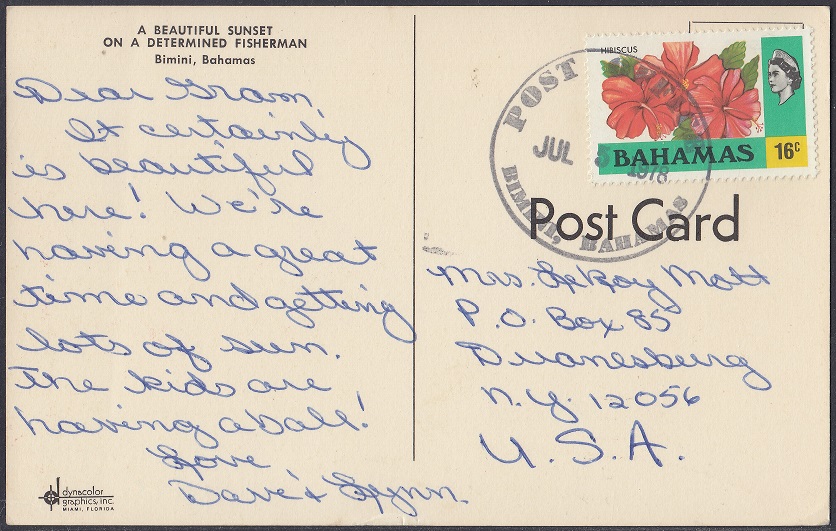 A BEAUTIFUL SUNSET
ON A DETERMINED FISHERMAN
Bimini, Bahamas
Dear Gram,
It certainly
is beautiful
here! We're
having a great
time and getting
lots of sun.
The kids are
having a ball!
Love,
Dave & Lynn.
dynacolor
graphics, inc.
MIAMI, FLORIDA
HIBISCUS
BAHAMAS 16c
POST
JUL 1978
BIMINI, BAHAMAS
Post Card
Mrs. LeRoy Mott
P.O. Box 85
Duanesburg
N.Y. 12056
U.S.A.